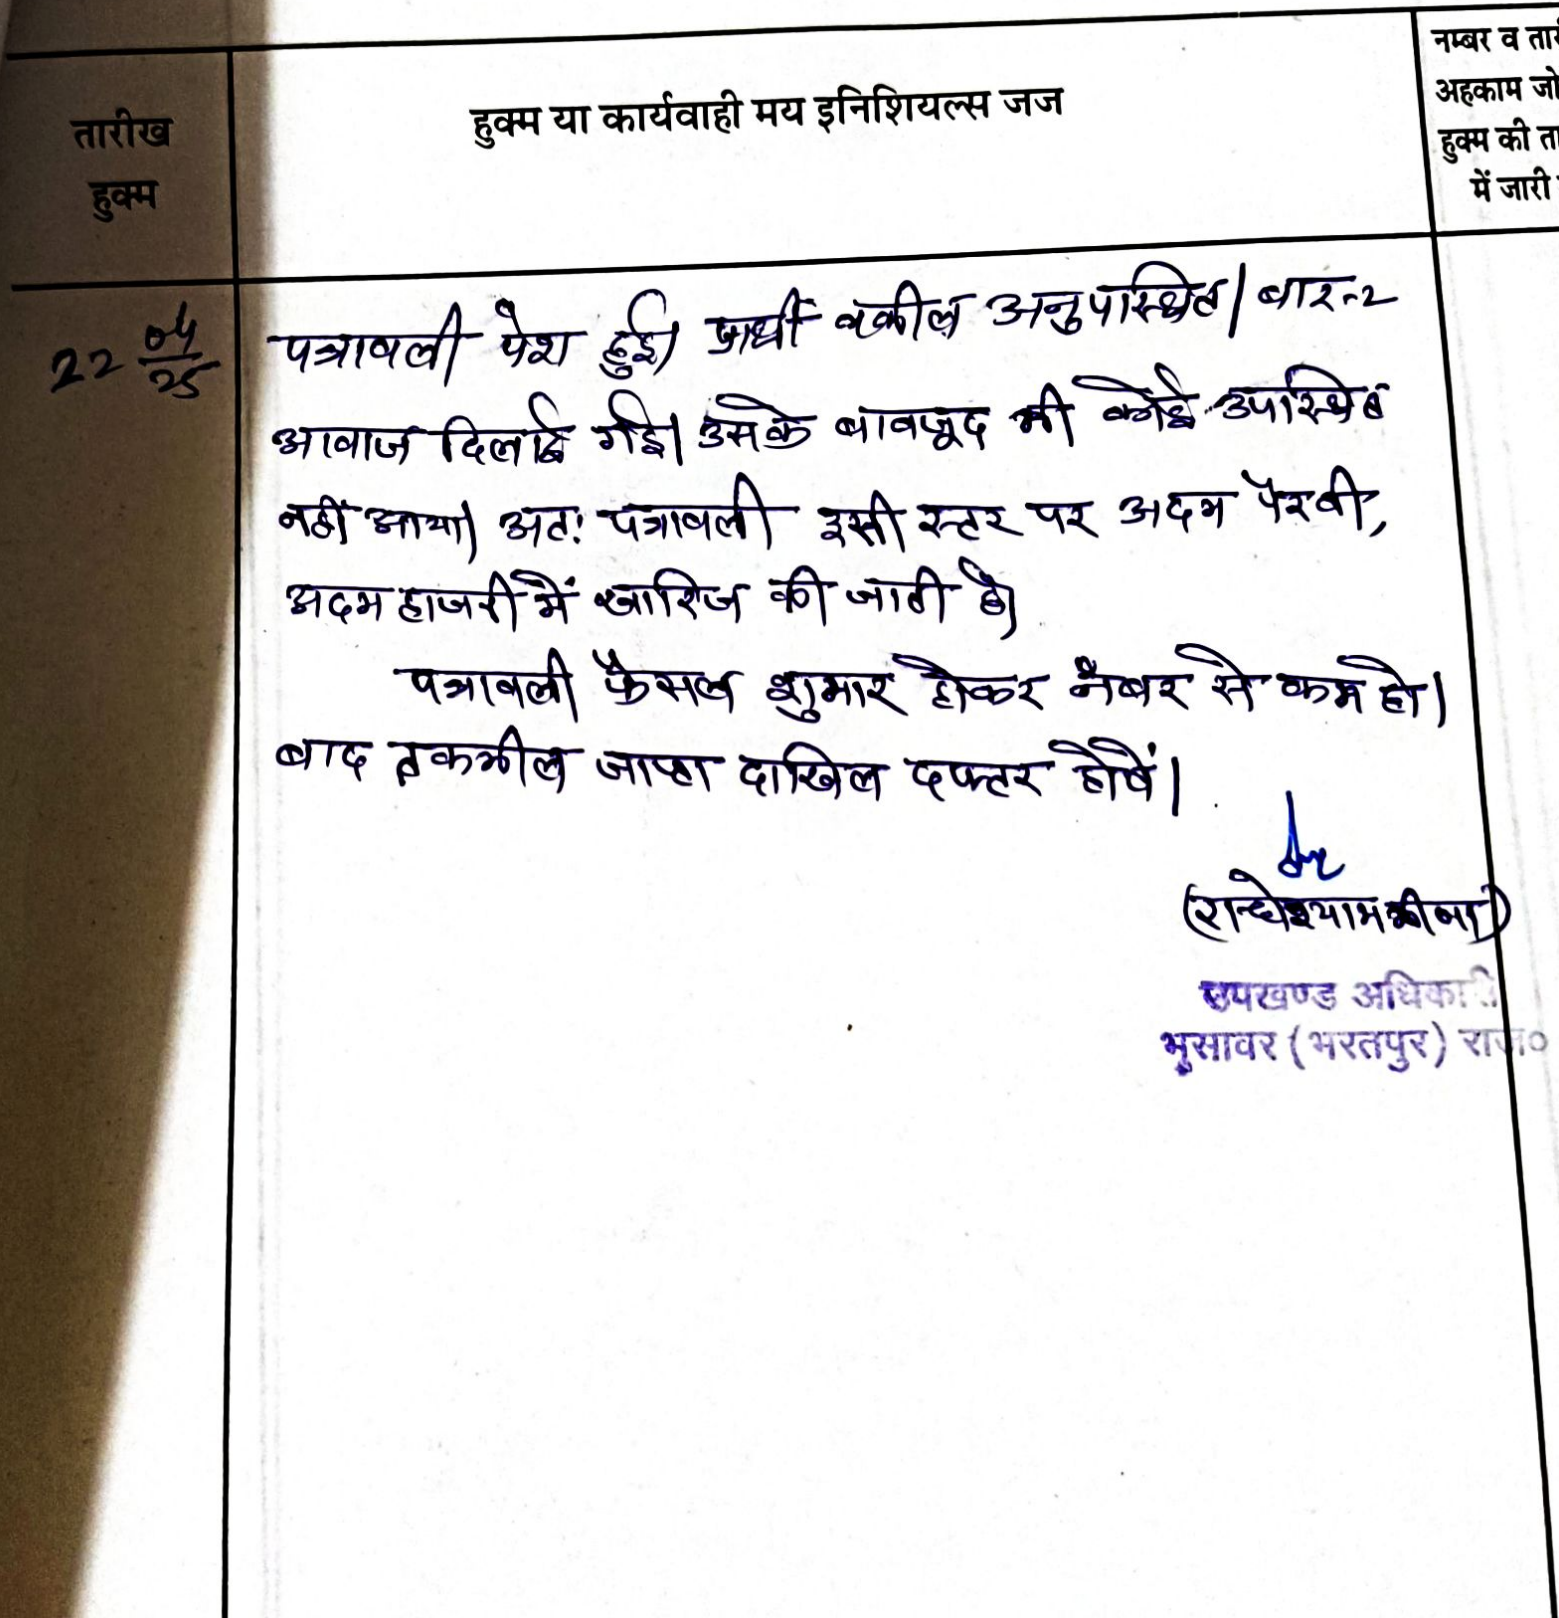 तारीख
हुक्म
हुक्म या कार्यवाही मय इनिशियल्स जज
नम्बर व तार
अहकाम जो
हुक्म की ता
में जारी
22 04/25
पत्रावली पेश हुई। प्रार्थी वकील अनुपस्थित। बार-2
आवाज दिलाई गई। उसके बावजूद भी कोई उपस्थित
नहीं आया। अतः पत्रावली इसी स्टर पर अदम पैरवी,
अदम हाजरी में खारिज की जाती है।
पत्रावली फैसल शुमार होकर नंबर से कम हो।
बाद तकमील जाप्ता दाखिल दफ्तर होवें।
(राधेश्याम मीना)
उपखण्ड अधिकारी
भुसावर (भरतपुर) राज०